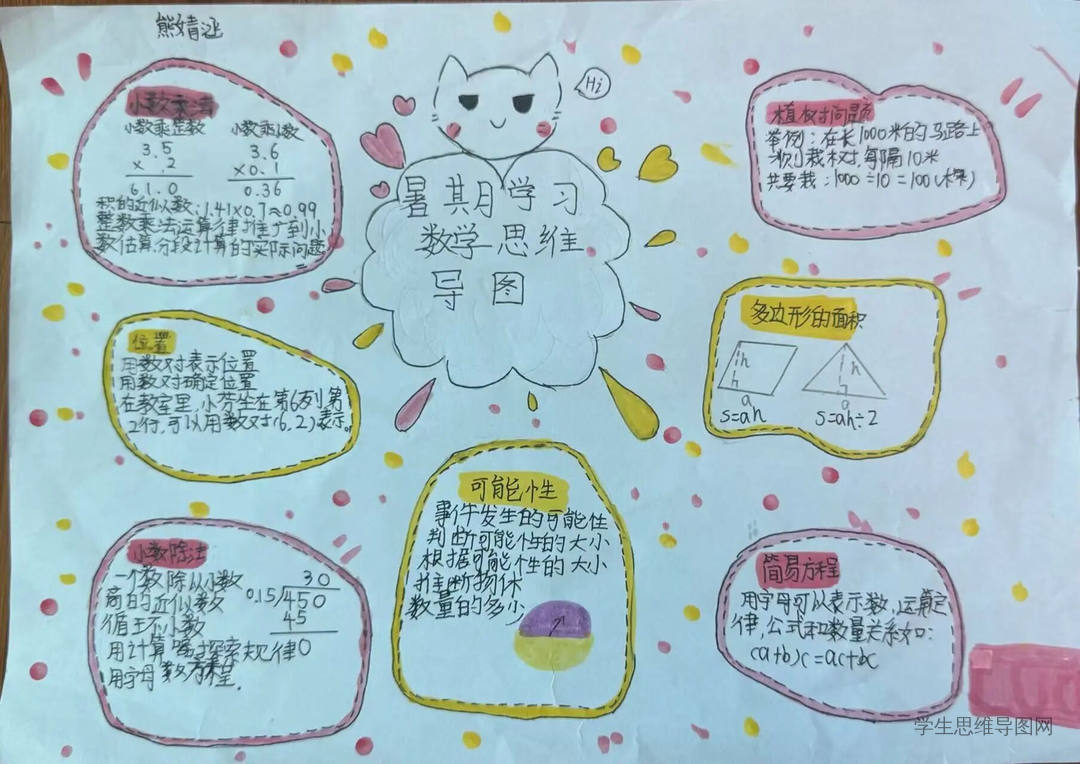 熊婧涵
Hi
暑期学习
数学思维
导图
小数乘法
小数乘整数 小数乘小数
3.5 3.6
× .2 ×0.1
61.0 0.36
积的近似数:1.41×0.7≈0.99
整数乘法运算律推广到小
数估算分段计算的实际问题
植树问题
举例:在长1000米的马路上
一则栽树每隔10米
共要栽:1000÷10=100(棵)
位置
用数对表示位置
用数对确定位置
在教室里,小芳坐在第6列第
2行,可以用数对(6,2)表示。
多边形的面积
h h
h
a a
S=ah S=ah÷2
可能性
事件发生的可能性
判断可能性的大小
根据可能性的大小
推断物体
数量的多少
小数除法
一个数除以小数
商的近似数
循环小数
用计算器探索规律
用字母数方程.
30
0.15 450
45
0
简易方程
用字母可以表示数,运算定
律,公式和数量关系如:
(a+b)c=ac+bc
学生思维导图网